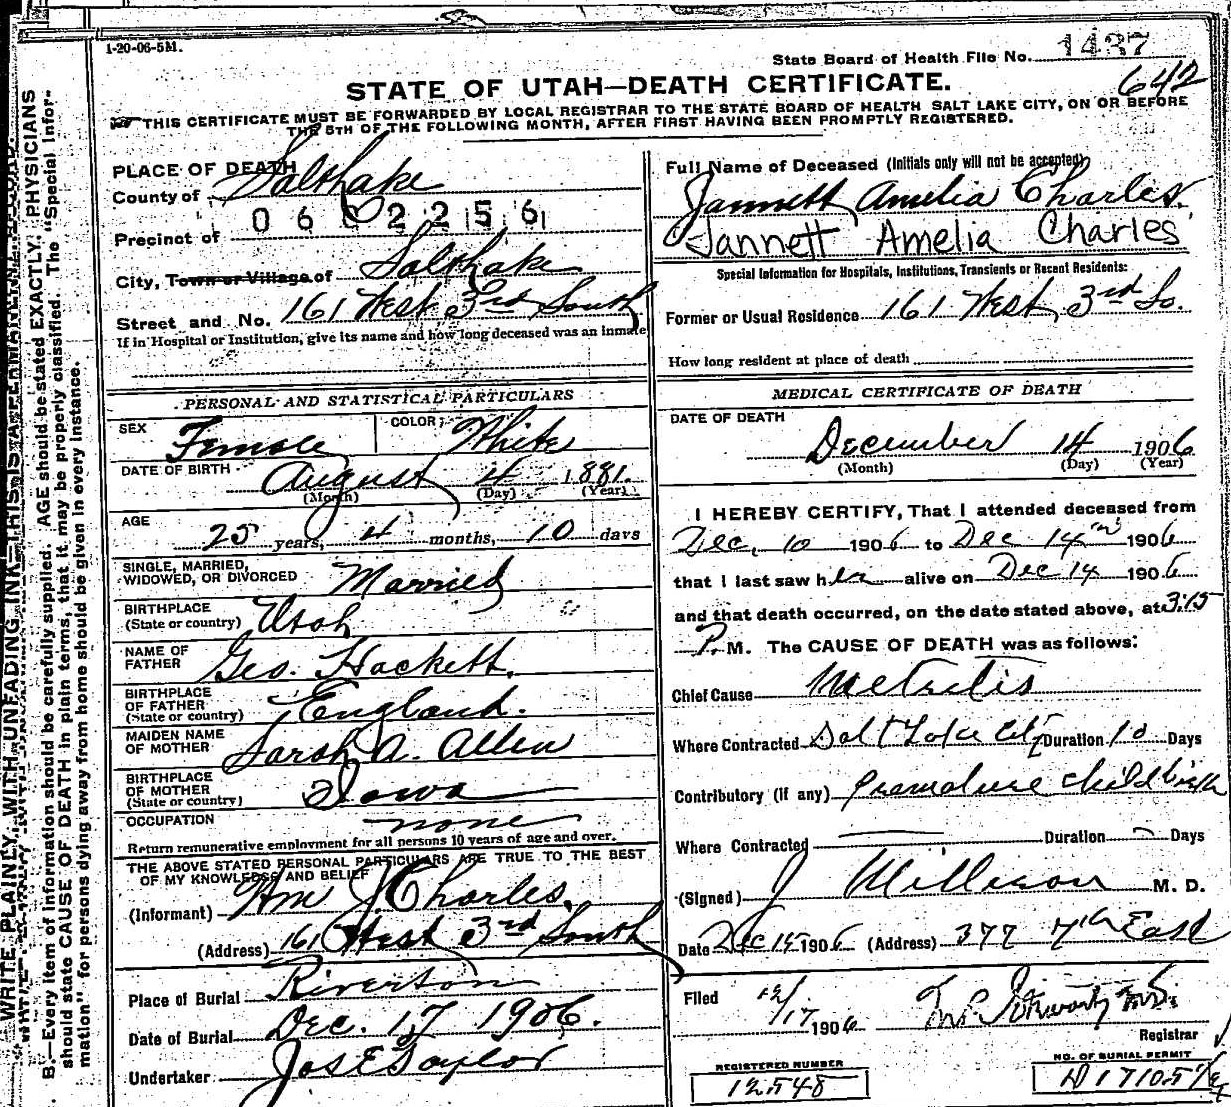 1-20-06-5M.
State Board of Health File No. 1437
642
STATE OF UTAH—DEATH CERTIFICATE.
THIS CERTIFICATE MUST BE FORWARDED BY LOCAL REGISTRAR TO THE STATE BOARD OF HEALTH SALT LAKE CITY, ON OR BEFORE
THE 5TH OF THE FOLLOWING MONTH, AFTER FIRST HAVING BEEN PROMPTLY REGISTERED.
PLACE OF DEATH
County of Salt Lake
0602256
Precinct of
City, Town or Village of Salt Lake
Street and No. 161 West 3rd South
If in Hospital or Institution, give its name and how long deceased was an inmate
PERSONAL AND STATISTICAL PARTICULARS
SEX Female COLOR White
DATE OF BIRTH August 4 1881.
(Month) (Day) (Year)
AGE 25 years, 4 months, 10 days
SINGLE, MARRIED,
WIDOWED, OR DIVORCED Married
BIRTHPLACE
(State or country) Utah
NAME OF
FATHER Geo. Hackett.
BIRTHPLACE
OF FATHER
(State or country) England.
MAIDEN NAME
OF MOTHER Sarah A. Allen
BIRTHPLACE
OF MOTHER
(State or country) Iowa
OCCUPATION none
Return remunerative employment for all persons 10 years of age and over.
THE ABOVE STATED PERSONAL PARTICULARS ARE TRUE TO THE BEST
OF MY KNOWLEDGE AND BELIEF
(Informant) Wm J. Charles.
(Address) 161 West 3rd South
Place of Burial Riverton
Date of Burial Dec. 17 1906.
Undertaker Jos E Taylor
Full Name of Deceased (Initials only will not be accepted)
Jannett Amelia Charles.
Jannett Amelia Charles
Special Information for Hospitals, Institutions, Transients or Recent Residents:
Former or Usual Residence 161 West 3rd So.
How long resident at place of death
MEDICAL CERTIFICATE OF DEATH
DATE OF DEATH
December 14 1906
(Month) (Day) (Year)
I HEREBY CERTIFY, That I attended deceased from
Dec. 10 1906 to Dec 14 1906
that I last saw her alive on Dec 14 1906
and that death occurred, on the date stated above, at 3:15
P. M. The CAUSE OF DEATH was as follows:
Chief Cause Metritis
Where Contracted Salt Lake City Duration 10 Days
Contributory (if any) Premature childbirth
Where Contracted Duration Days
(Signed) J M. D.
Date Dec 15 1906 (Address) 377 7th East
Filed 12/17 1906
Registrar
REGISTERED NUMBER
12548
NO. OF BURIAL PERMIT
D17105
WRITE PLAINLY, WITH UNFADING INK—THIS IS A PERMANENT RECORD.
B.—Every item of information should be carefully supplied. AGE should be stated EXACTLY. PHYSICIANS
should state CAUSE OF DEATH in plain terms, that it may be properly classified. The "Special Infor-
mation" for persons dying away from home should be given in every instance.